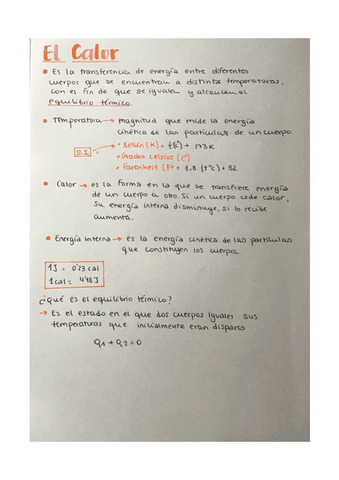 El Calor
• Es la transferencia de energía entre diferentes
cuerpos que se encuentran a distintas temperaturas,
con el fin de que se igualen y alcancen el
equilibrio térmico.
• Temperatura → magnitud que mide la energía
cinética de las partículas de un cuerpo.
SI → • Kelvin (K) = tª(°) + 273K
• Grados Celsius (C°)
• Farenheit (F° = 1,8 (t°c) + 32
• Calor → es la forma en la que se transfiere energía
de un cuerpo a otro. Si un cuerpo cede calor,
su energía interna disminuye, si lo recibe
aumenta.
• Energía interna → es la energía cinética de las partículas
que constituyen los cuerpos.
1J = 0'23 cal
1cal = 4'18J
¿Qué es el equilibrio térmico?
→ Es el estado en el que dos cuerpos iguales sus
temperaturas que inicialmente eran dispares
Q1 + Q2 = 0